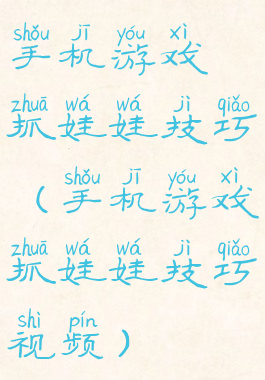 shǒu jī yóu xì
手机游戏
zhuā wá wá jì qiǎo
抓娃娃技巧
shǒu jī yóu xì
(手机游戏
zhuā wá wá jì qiǎo
抓娃娃技巧
shì pín
视频)